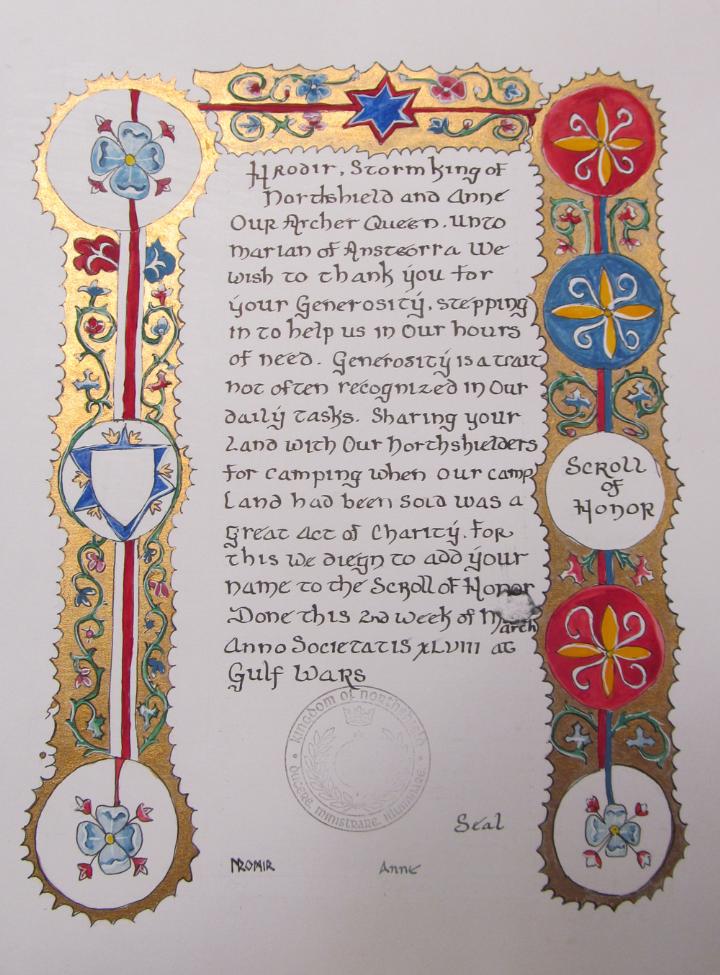 Hrodir, Stormking of
Northshield and Anne
Our Archer Queen. Unto
Marian of Ansteorra We
wish to thank you for
your Generosity, stepping
in to help us in Our hours
of need. Generosity is a trait
not often recognized in Our
daily tasks. Sharing your
Land with Our Northshielders
for camping when our camp
Land had been sold was a
great Act of Charity. For
this we diegn to add your
name to the Scroll of Honor
Done this 2nd week of March
Anno Societatis XLVIII at
Gulf Wars
Scroll
of
Honor
Kingdom of Northshield
Ducere, Ministrare, Illuminare
Seal
Anne